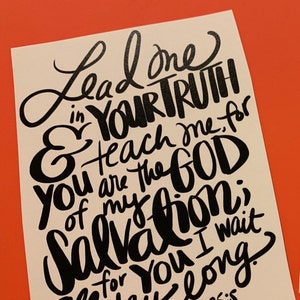 Lead me
in YOUR TRUTH
& teach me, for
YOU are the GOD
of my
Salvation;
for YOU I wait
all day long.